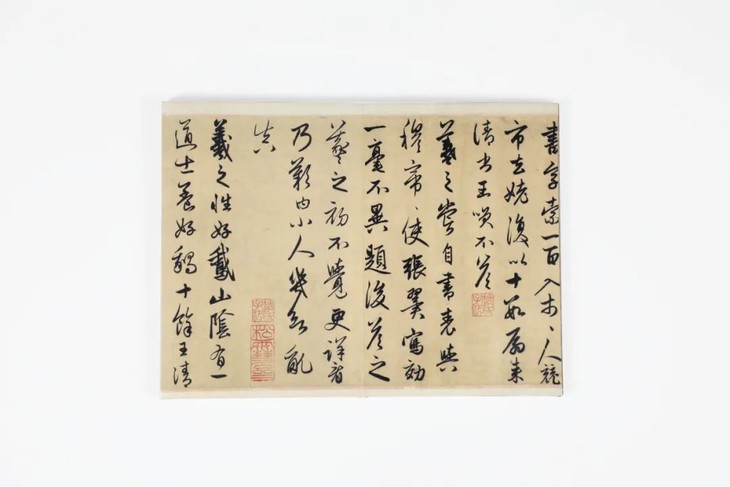 書字索一百入市、人競
市去姥復以十數扇來
請書王咲不答
羲之嘗自書表與
穆帝、使張翼寫効
一毫不異題後答之
羲之初不覺更詳看
乃歎曰小人幾欲亂
真
松雪齋
羲之性好鵞山陰有一
道士養好鵝十餘王清